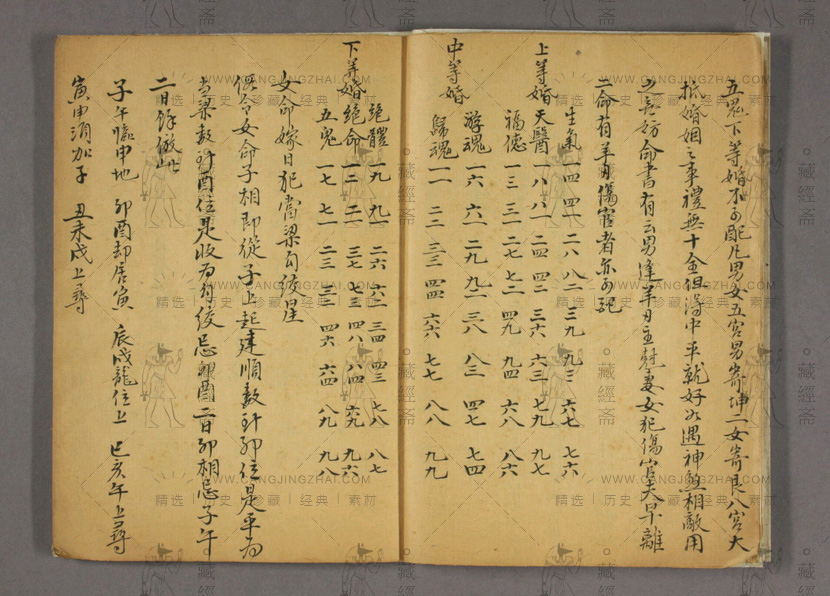 五鬼下等婚不可配凡男女五宮男寄坤二女寄艮八宮大
抵婚姻之事禮無十全但得中平就好如遇神煞相敵用
之無妨命書有云男逢羊刃主尅妻女犯傷官夫早離
二命有羊刃傷官者亦可配
上等婚
生氣 一四 四一 二八 八二 三九 九三 六七 七六
天醫 一八 八一 二四 四二 三六 六三 七九 九七
福德 一三 三一 二七 七二 四九 九四 六八 八六
中等婚
游魂 一六 六一 二九 九二 三八 八三 四七 七四
歸魂 一一 二二 三三 四四 六六 七七 八八 九九
下等婚
絕體 一九 九一 二六 六二 三四 四三 七八 八七
絕命 一二 二一 三七 七三 四八 八四 六九 九六
五鬼 一七 七一 二三 三二 四六 六四 八九 九八
女命嫁日犯當梁勾絞星
假令女命子相即從子上起建順數到卯位是平為
當梁數到酉位是收為勾絞忌卯酉二日卯相忌子午
二日餘倣此
子午臨申地 卯酉却居寅 辰戌龍位上 巳亥午上尋
寅申須加子 丑未戌上尋
WWW.CANGJINGZHAI.COM
精选 | 历史 | 珍藏 | 经典 | 素材
藏經斋